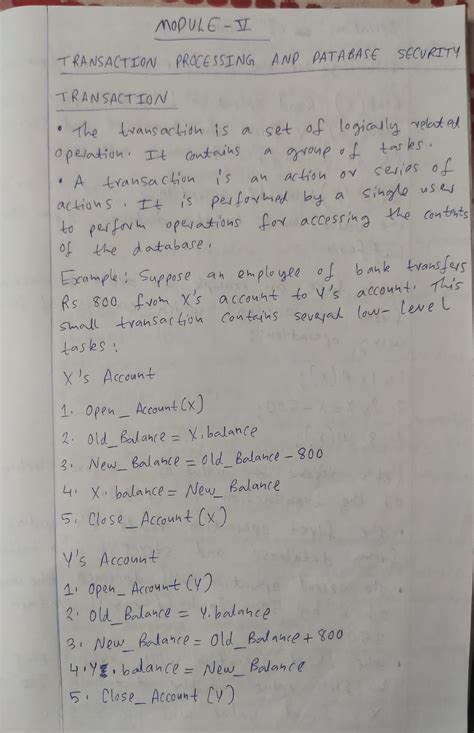 MODULE - V
TRANSACTION PROCESSING AND DATABASE SECURITY
TRANSACTION
• The transaction is a set of logically related
operation. It contains a group of tasks.
• A transaction is an action or series of
actions. It is performed by a single user
to perform operations for accessing the contents
of the database.
Example: Suppose an employee of bank transfers
Rs 800 from X's account to Y's account. This
small transaction contains several low-level
tasks:
X's Account
1. Open_Account(X)
2. Old_Balance = X.balance
3. New_Balance = Old_Balance - 800
4. X.balance = New_Balance
5. Close_Account(X)
Y's Account
1. Open_Account(Y)
2. Old_Balance = Y.balance
3. New_Balance = Old_Balance + 800
4. Y.balance = New_Balance
5. Close_Account(Y)